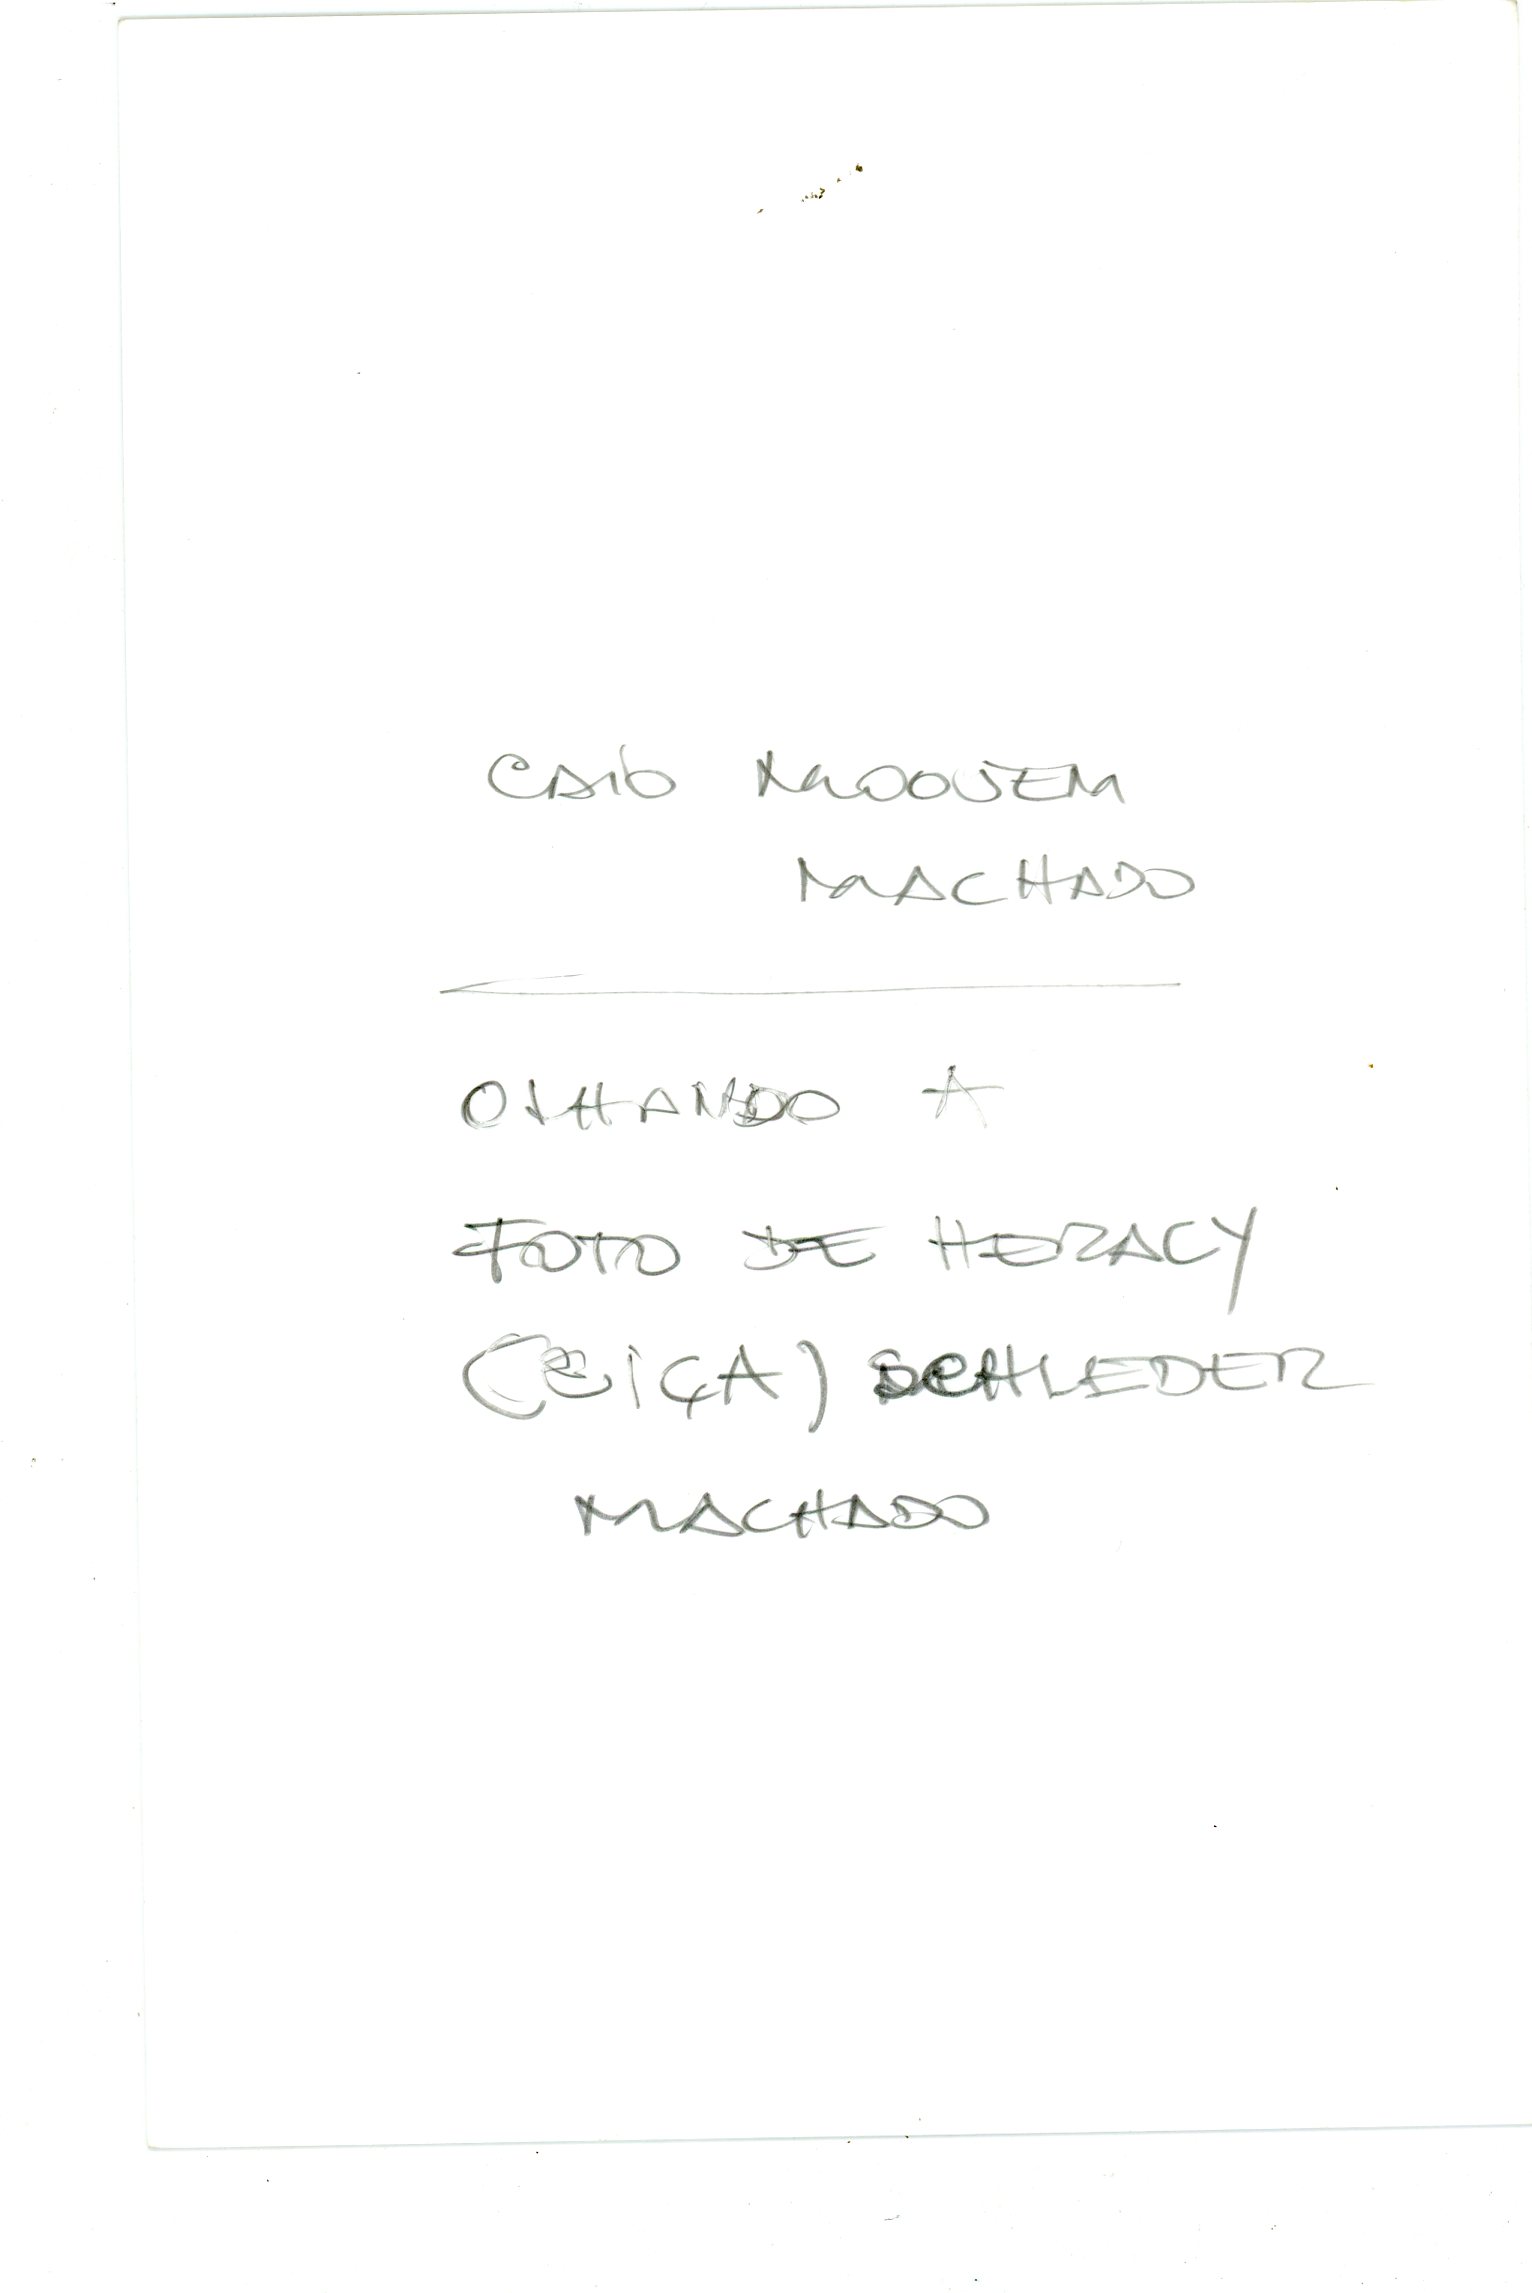 CAIO MOOJEM
MACHADO
OLHANDO A
FOTO DE HERACY
(CEIÇA) SCHLEDER
MACHADO